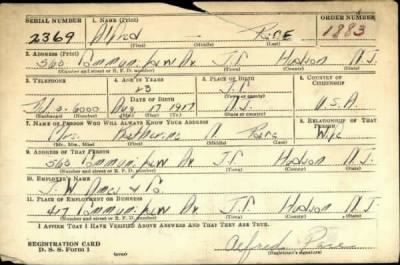 SERIAL NUMBER 1. NAME (Print) ORDER NUMBER
2369 Alfred Rose 1883
(First) (Middle) (Last)
2. ADDRESS (Print)
560 Communipaw Av J.C. Hudson N.J.
(Number and street or R. F. D. number) (Town) (County) (State)
3. TELEPHONE 4. AGE IN YEARS 5. PLACE OF BIRTH 6. COUNTRY OF CITIZENSHIP
23 J.C.
6000 DATE OF BIRTH (Town or county)
Aug 17 1917 N.J. U.S.A.
(Exchange) (Number) (Mo.) (Day) (Yr.) (State or country)
7. NAME OF PERSON WHO WILL ALWAYS KNOW YOUR ADDRESS 8. RELATIONSHIP OF THAT PERSON
Mrs. Katherine A Rose Wife
(Mr., Mrs., Miss) (First) (Middle) (Last)
9. ADDRESS OF THAT PERSON
560 Communipaw Av J.C. Hudson N.J.
(Number and street or R. F. D. number) (Town) (County) (State)
10. EMPLOYER'S NAME
J. W. Ames & Co
11. PLACE OF EMPLOYMENT OR BUSINESS
417 Communipaw Av J.C. Hudson N.J.
(Number and street or R. F. D. number) (Town) (County) (State)
I AFFIRM THAT I HAVE VERIFIED ABOVE ANSWERS AND THAT THEY ARE TRUE.
REGISTRATION CARD
D. S. S. Form 1 (over) Alfred Rose
(Registrant's signature)